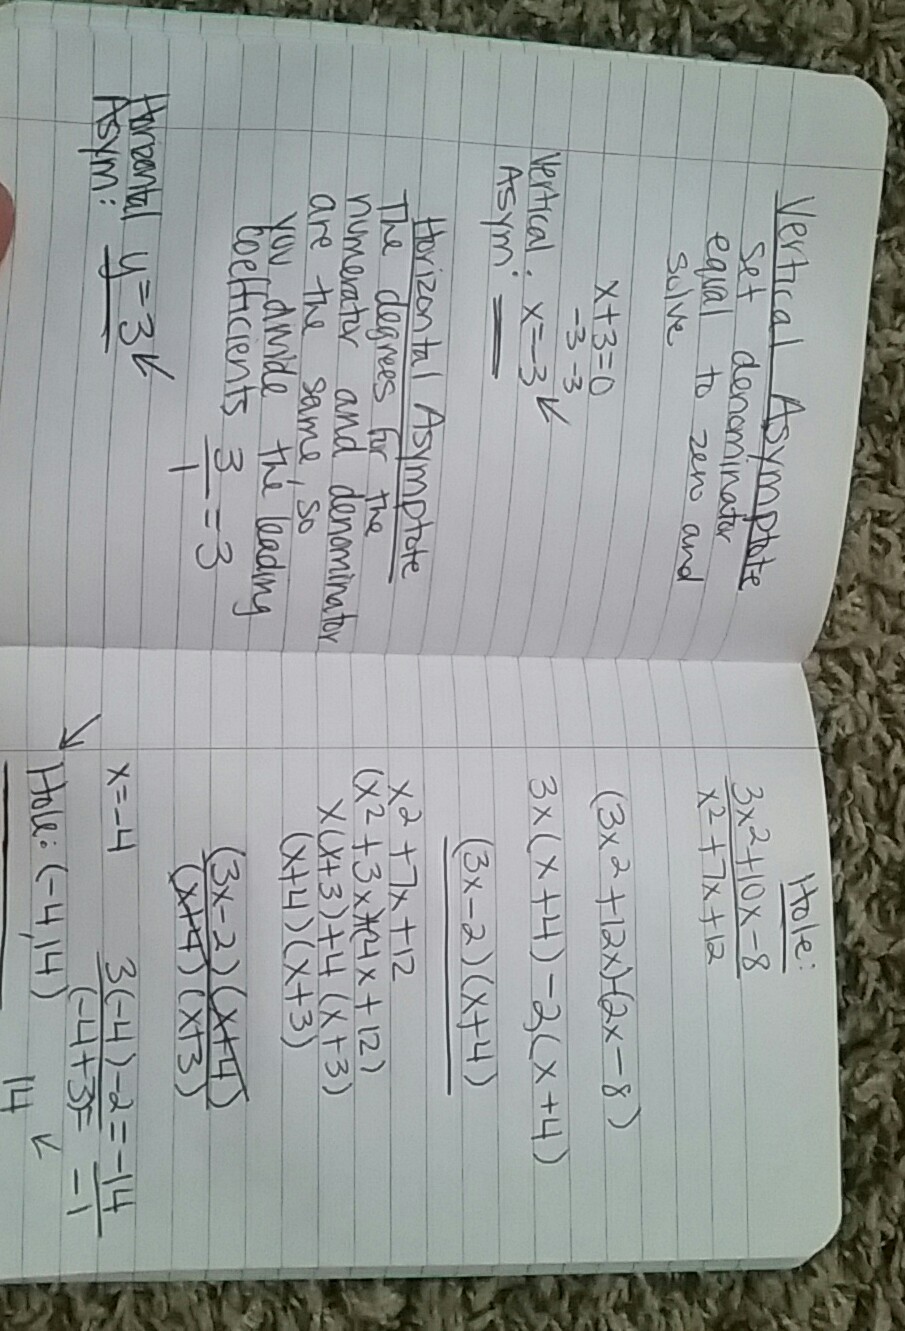 Vertical Asymptote
Set denominator
equal to zero and
solve
x+3=0
-3 -3
Vertical: x=-3
Asym:
Horizontal Asymptote
The degrees for the
numerator and denominator
are the same, so
you divide the leading
coefficients 3/1 = 3
Horizontal y=3
Asym:
Hole:
3x²+10x-8
x²+7x+12
(3x²+12x)(2x-8)
3x(x+4)-2(x+4)
(3x-2)(x+4)
x²+7x+12
(x²+3x)+(4x+12)
x(x+3)+4(x+3)
(x+4)(x+3)
(3x-2)(x+4)
(x+4)(x+3)
x=-4 3(-4)-2 = -14
(-4+3)= -1
Hole: (-4,14) 14